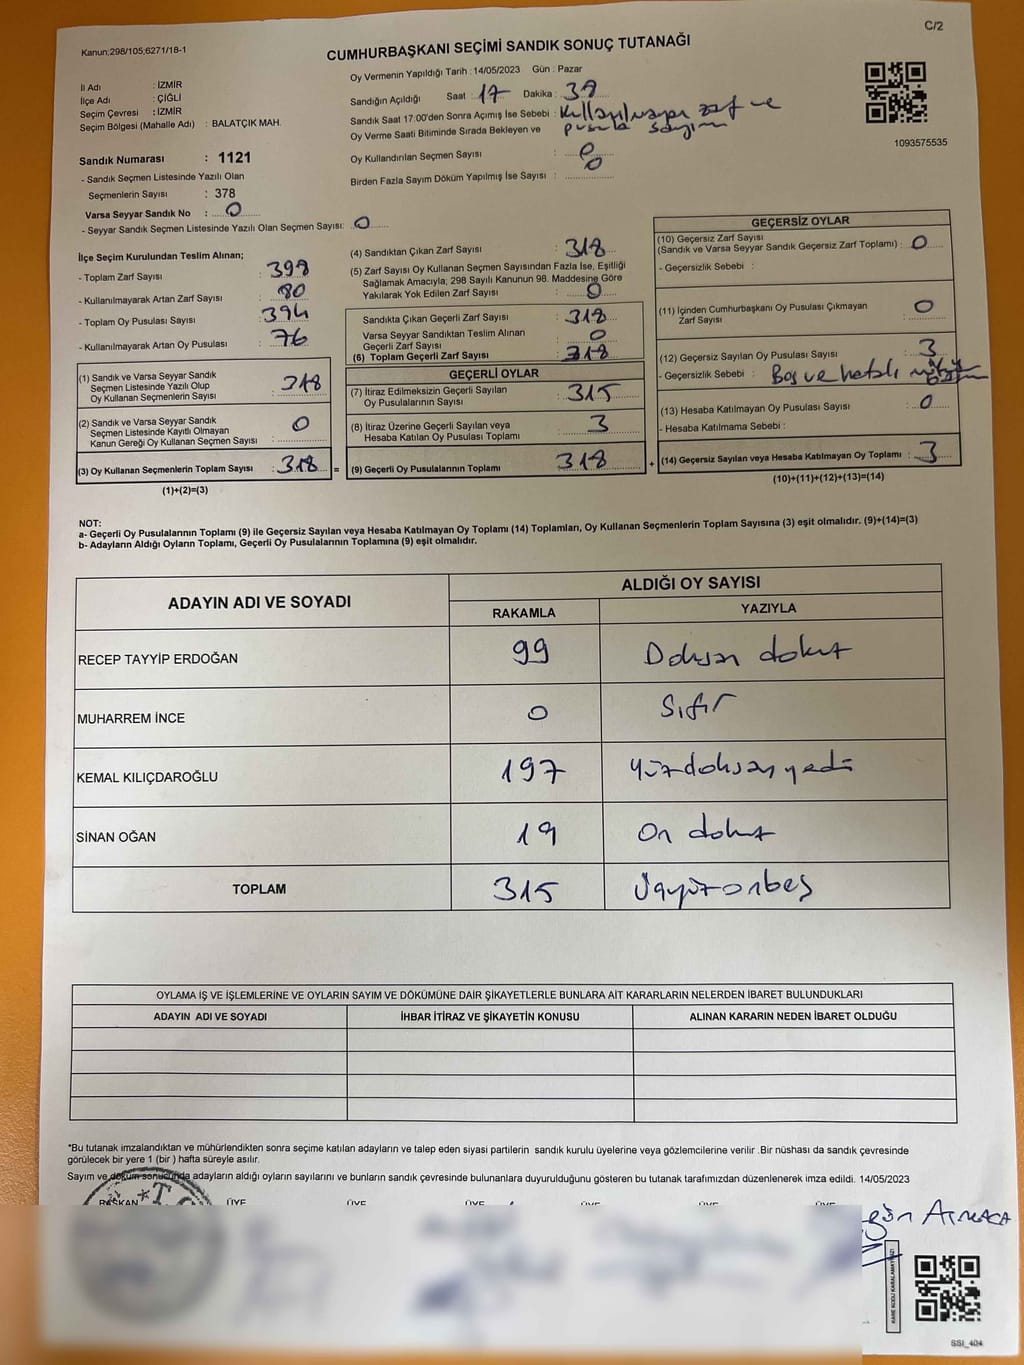 C/2
Kanun:298/105,6271/18-1
CUMHURBAŞKANI SEÇİMİ SANDIK SONUÇ TUTANAĞI
İl Adı : İZMİR
İlçe Adı : ÇİĞLİ
Seçim Çevresi : İZMİR
Seçim Bölgesi (Mahalle Adı) : BALATÇIK MAH.
Oy Vermenin Yapıldığı Tarih : 14/05/2023 Gün : Pazar
Sandığın Açıldığı Saat : 17 Dakika : 39
Sandık Saat 17:00'den Sonra Açımış İse Sebebi : Kullanılmayan zarf ve
Oy Verme Saati Bitiminde Sırada Bekleyen ve pusula sayımı
Oy Kullandırılan Seçmen Sayısı : 0
Birden Fazla Sayım Döküm Yapılmış İse Sayısı : 0
1093575535
Sandık Numarası : 1121
- Sandık Seçmen Listesinde Yazılı Olan
Seçmenlerin Sayısı : 378
Varsa Seyyar Sandık No : 0
- Seyyar Sandık Seçmen Listesinde Yazılı Olan Seçmen Sayısı: 0
İlçe Seçim Kurulundan Teslim Alınan;
- Toplam Zarf Sayısı : 398
- Kullanılmayarak Artan Zarf Sayısı : 80
- Toplam Oy Pusulası Sayısı : 394
- Kullanılmayarak Artan Oy Pusulası : 76
(1) Sandık ve Varsa Seyyar Sandık
Seçmen Listesinde Yazılı Olup
Oy Kullanan Seçmenlerin Sayısı : 318
(2) Sandık ve Varsa Seyyar Sandık
Seçmen Listesinde Kayıtlı Olmayan
Kanun Gereği Oy Kullanan Seçmen Sayısı : 0
(3) Oy Kullanan Seçmenlerin Toplam Sayısı : 318 =
(1)+(2)=(3)
(4) Sandıktan Çıkan Zarf Sayısı : 318
(5) Zarf Sayısı Oy Kullanan Seçmen Sayısından Fazla İse, Eşitliği
Sağlamak Amacıyla, 298 Sayılı Kanunun 98. Maddesine Göre
Yakılarak Yok Edilen Zarf Sayısı : 0
Sandıkta Çıkan Geçerli Zarf Sayısı : 318
Varsa Seyyar Sandıktan Teslim Alınan
Geçerli Zarf Sayısı : 0
(6) Toplam Geçerli Zarf Sayısı : 318
GEÇERLİ OYLAR
(7) İtiraz Edilmeksizin Geçerli Sayılan
Oy Pusulalarının Sayısı : 315
(8) İtiraz Üzerine Geçerli Sayılan veya
Hesaba Katılan Oy Pusulası Toplamı : 3
(9) Geçerli Oy Pusulalarının Toplamı : 318 +
GEÇERSİZ OYLAR
(10) Geçersiz Zarf Sayısı
(Sandık ve Varsa Seyyar Sandık Geçersiz Zarf Toplamı) : 0
- Geçersizlik Sebebi :
(11) İçinden Cumhurbaşkanı Oy Pusulası Çıkmayan
Zarf Sayısı : 0
(12) Geçersiz Sayılan Oy Pusulası Sayısı : 3
- Geçersizlik Sebebi : Boş ve hatalı
(13) Hesaba Katılmayan Oy Pusulası Sayısı : 0
- Hesaba Katılmama Sebebi :
(14) Geçersiz Sayılan veya Hesaba Katılmayan Oy Toplamı : 3
(10)+(11)+(12)+(13)=(14)
NOT:
a- Geçerli Oy Pusulalarının Toplamı (9) ile Geçersiz Sayılan veya Hesaba Katılmayan Oy Toplamı (14) Toplamları, Oy Kullanan Seçmenlerin Toplam Sayısına (3) eşit olmalıdır. (9)+(14)=(3)
b- Adayların Aldığı Oyların Toplamı, Geçerli Oy Pusulalarının Toplamına (9) eşit olmalıdır.
ADAYIN ADI VE SOYADI ALDIĞI OY SAYISI
RAKAMLA YAZIYLA
RECEP TAYYİP ERDOĞAN 99 Doksan dokuz
MUHARREM İNCE 0 Sıfır
KEMAL KILIÇDAROĞLU 197 Yüzdoksanyedi
SİNAN OĞAN 19 On dokuz
TOPLAM 315 Üçyüzonbeş
OYLAMA İŞ VE İŞLEMLERİNE VE OYLARIN SAYIM VE DÖKÜMÜNE DAİR ŞİKAYETLERLE BUNLARA AİT KARARLARIN NELERDEN İBARET BULUNDUKLARI
ADAYIN ADI VE SOYADI İHBAR İTİRAZ VE ŞİKAYETİN KONUSU ALINAN KARARIN NEDEN İBARET OLDUĞU
*Bu tutanak imzalandıktan ve mühürlendikten sonra seçime katılan adayların ve talep eden siyasi partilerin sandık kurulu üyelerine veya gözlemcilerine verilir .Bir nüshası da sandık çevresinde
görülecek bir yere 1 (bir ) hafta süreyle asılır.
Sayım ve döküm sonucunda adayların aldığı oyların sayılarını ve bunların sandık çevresinde bulunanlara duyurulduğunu gösteren bu tutanak tarafımızdan düzenlenerek imza edildi. 14/05/2023
BAŞKAN ÜYE ÜYE ÜYE ÜYE ÜYE ÜYE
KARE KODU KARALAMAYINIZ!
SSI_404